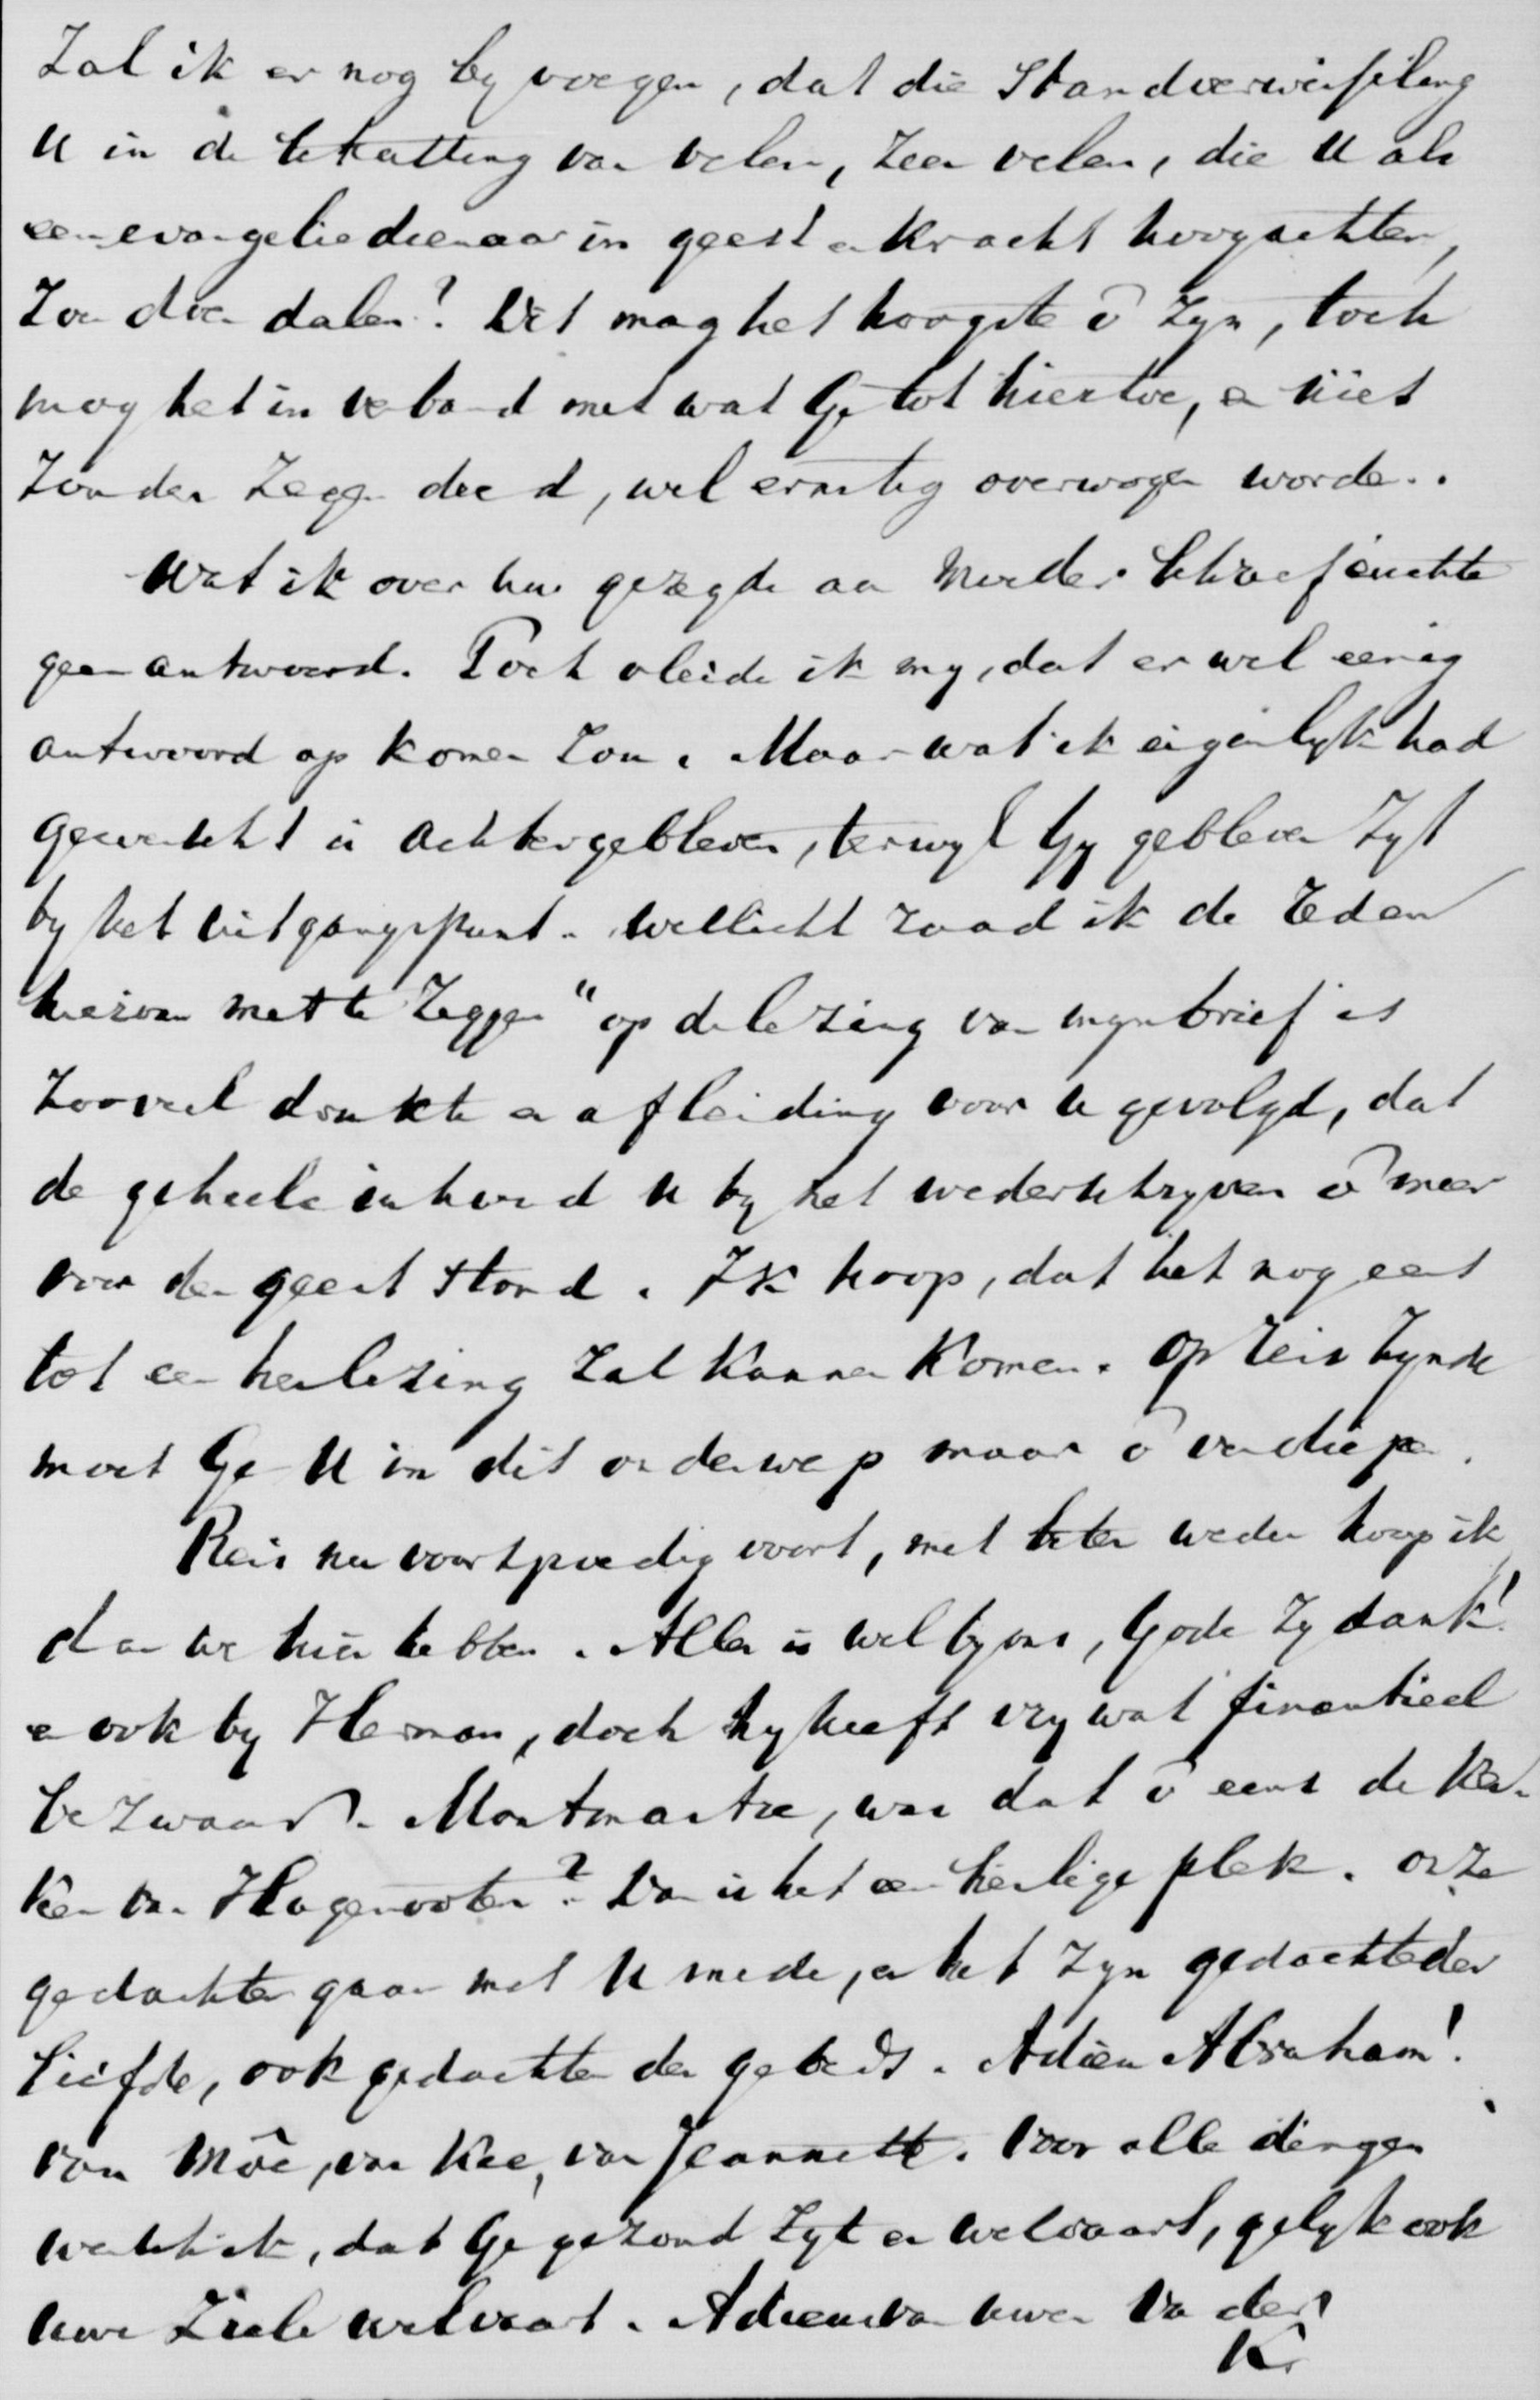 Zal ik er nog by voegen, dat die Standverwisseling
U in de schatting van velen, zeer velen, die U als
een evangeliedienaar in geest en kracht hoogachtten,
Zou doen dalen? Dit mag het hoogste ō zyn, toch
mag het in verband met wat Ge tot hiertoe, en niet
Zonder Zegen deed, wel ernstig overwogen worden.
Wat ik over hun gezegde aan Moeder schreef eischte
geen antwoord. Toch vleide ik my, dat er wel eenig
antwoord op komen zou. Maar wat ik eigenlyk had
gewacht is achtergebleven, terwyl Gy gebleven zyt
by het uitgangspunt. Wellicht raad ik de reden
hiervan met te zeggen "op de lezing van mijn brief is
Zooveel drukte en afleiding voor U gevolgd, dat
de geheele inhoud U by het wederschryven ō meer
voor den geest stond. Ik hoop, dat het nog eens
tot een herlezing zal kunnen komen. Op reis zynde
moet Ge U in dit onderwerp maar ō verdiepen.
Reis nu voorspoedig voort, met beter weder hoop ik
dan we hier hebben. Alles is wel by ons, Gode zy dank!
en ook by Herman, doch hy heeft vry wat finantieel
bezwaar. Montmartre, was dat ō eens de ker-
ken van Hugenooten? Dan is het een heilige plek. Onze
gedachten gaan met U mede, en het zyn gedachten der
liefde, ook gedachten des gebeds. Adieu Abraham!
van Môe, van Kee, van Jeannette. Voor alle dingen
wensch ik, dat Ge gezond zyt en welvaart, gelyk ook
uwe Ziele welvaart. Adieu van uwen Vader
K.